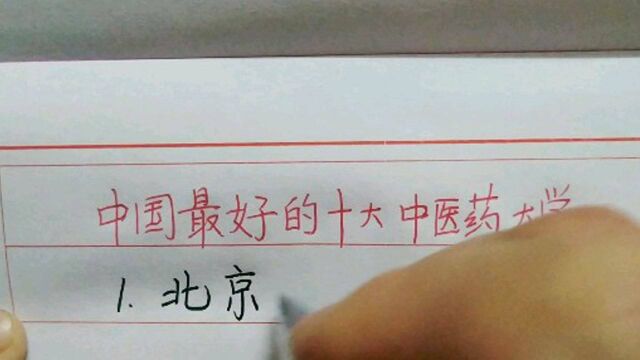 中国最好的十大中医药大学
1.北京